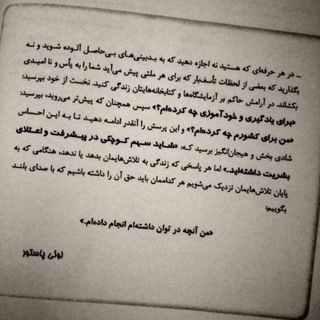 - در هر حرفه‌ای که هستید نه اجازه دهید که به بدبینی‌های بی‌حاصل آلوده شوید و نه
بگذارید که بعضی از لحظات تأسف‌بار که برای هر ملتی پیش می‌آید شما را به یأس و نا امیدی
بکشاند. در آرامش حاکم بر آزمایشگاه‌ها و کتابخانه‌هایتان زندگی کنید. نخست از خود بپرسید:
«برای یادگیری و خودآموزی چه کرده‌ام؟» سپس همچنان که پیش‌تر می‌روید، بپرسید:
«من برای کشورم چه کرده‌ام؟» و این پرسش را آنقدر ادامه دهید تا به این احساس
شادی بخش و هیجان‌انگیز برسید که: «شاید سهم کوچکی در پیشرفت و اعتلای
بشریت داشته‌اید.» اما هر پاسخی که زندگی به تلاش‌هایمان بدهد یا ندهد، هنگامی که به
پایان تلاش‌هایمان نزدیک می‌شویم هر کداممان باید حق آن را داشته باشیم که با صدای بلند
بگوییم:
«من آنچه در توان داشته‌ام انجام داده‌ام.»
لوئی پاستور